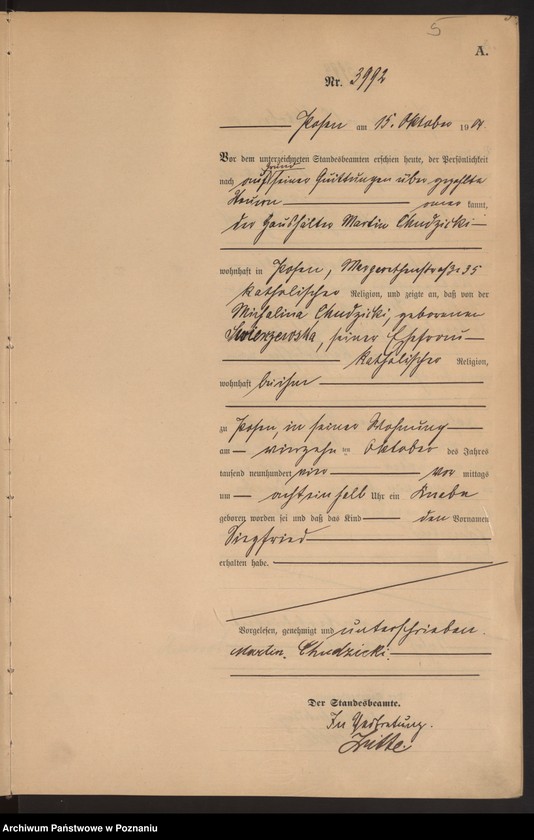 5
A.
Nr. 3992
Posen am 15. Oktober 1904
Vor dem unterzeichneten Standesbeamten erschien heute, der Persönlichkeit
nach auf Grund seiner Quittungen über gezahlte
Steuern aner kannt,
der Haushälter Martin Chudzicki
wohnhaft in Posen, Margarethenstraße 35
katholischer Religion, und zeigte an, daß von der
Michalina Chudzicki, geborenen
seiner Ehefrau
katholischer Religion,
wohnhaft bei ihm
zu Posen, in seiner Wohnung
am vierzehnten Oktober des Jahres
tausend neunhundert vier Vor mittags
um acht einhalb Uhr ein Knabe
geboren worden sei und daß das Kind den Vornamen
Siegfried
erhalten habe.
Vorgelesen, genehmigt und unterschrieben.
Martin Chudzicki
Der Standesbeamte.
In Vertretung.
Archiwum Państwowe w Poznaniu